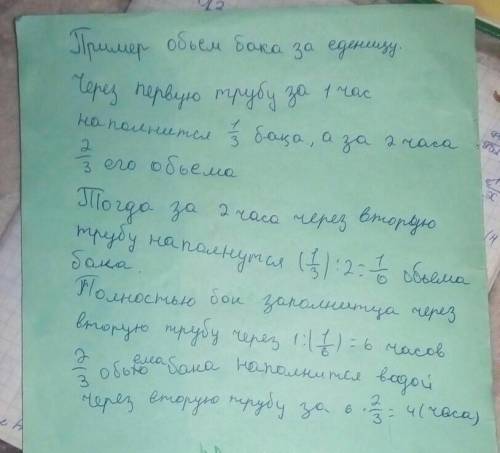 Пример обьем бака за еденицу.
Через первую трубу за 1 час
наполнится 1/3 бака, а за 2 часа
2/3 его обьема
Тогда за 2 часа через вторую
трубу наполнутся (1/3):2=1/6 обьема
бака.
Полностью бок заполнитца через
вторую трубу через 1:(1/6)=6 часов
2/3 обьема бака наполнится водой
через вторую трубу за 6·2/3=4(часа)